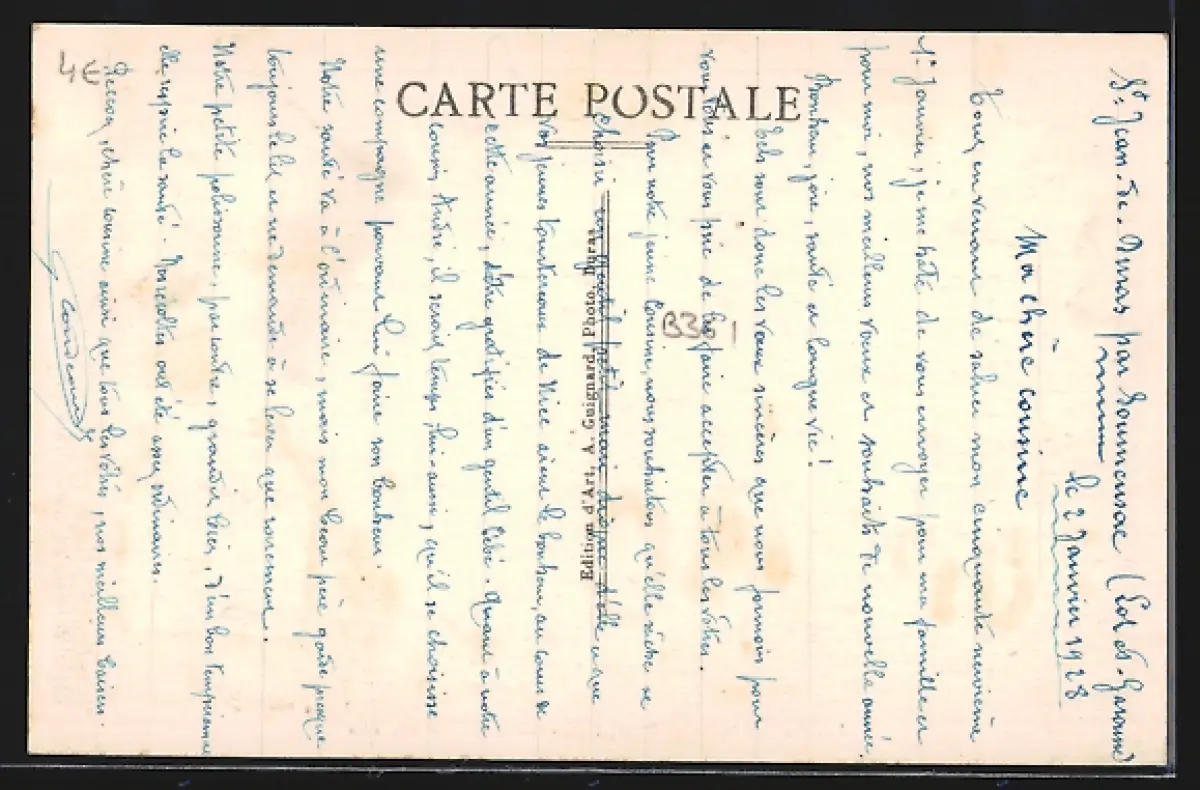 St Jean-de-Duras par Soumensac (Lot-et-Garonne)
le 2 Janvier 1928
Ma chère cousine
Tout en venant de saluer mon cinquante neuvième
1er Janvier, je me hâte de vous envoyer pour ma famille et
pour moi, nos meilleurs vœux et souhaits de nouvelle année.
Bonheur, joie, santé et longue vie!
Tels sont donc les vœux sincères que nous formons pour
vous tous et vous prie de les faire accepter à tous les vôtres.
Pour notre jeune Cousine, nous souhaitons qu'elle sache se
choisir un petit mari digne d'elle et que
vos jeunes tourtereaux de Nice aient le bonheur, au cours de
cette année, d'être gratifiés d'un gentil bébé. Quant à notre
cousin André, il serait temps, lui-aussi, qu'il se choisisse
une compagne pouvant lui faire son bonheur.
Notre santé va à l'ordinaire, mais mon beau père garde presque
toujours le lit et ne demande à se lever que rarement.
Notre petite polissonne, par contre, grandit bien, d'un bon tempérament
elle respire la santé. Nos récoltes ont été assez ordinaires.
Recevez, chère cousine ainsi que tous les vôtres, nos meilleurs baisers.
CARTE POSTALE
Edition d'Art. A. Guignard Photo. Duras
4€
B36